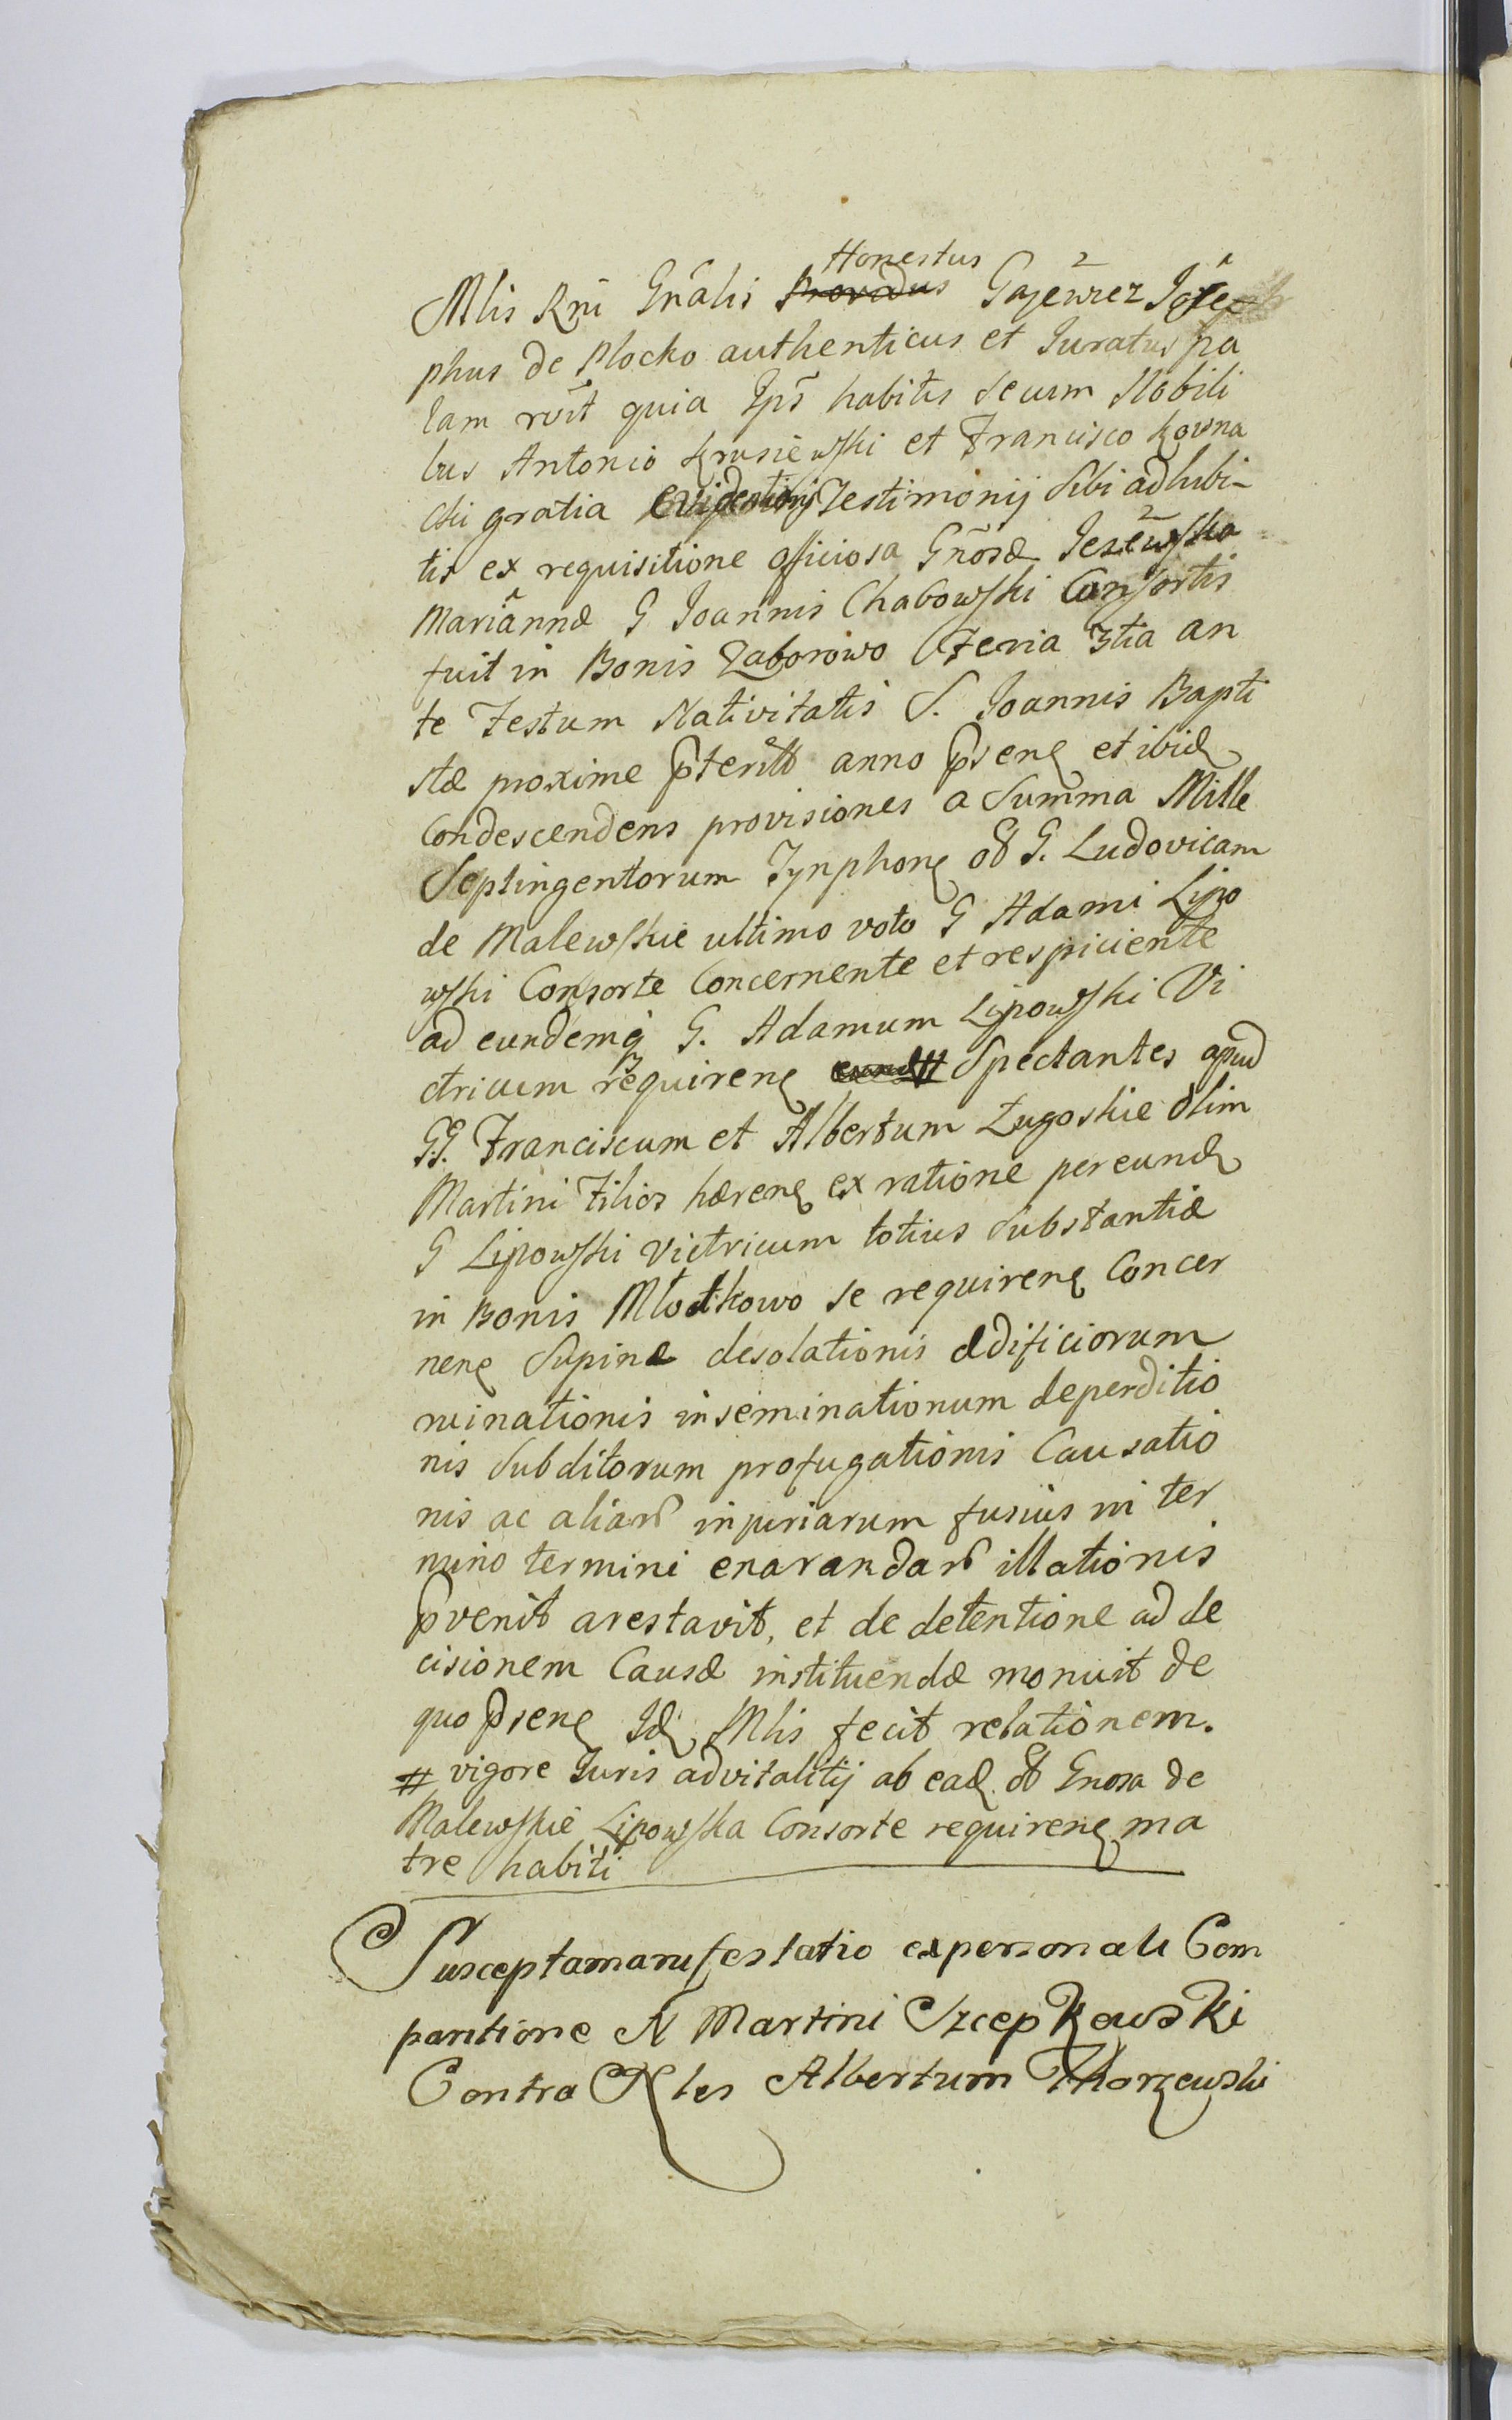 Honestus
Mlis Rni Gnalis Providus Gajewrez Jose
phus de Plocko authenticus et Juratus pa
lam rvit quia Ips habitis secum Nobili
bus Antonio Krusiewski et Francisco Kowna
cki gratia evidentioris Testimonij sibi adhibi-
tis ex requisitione officiosa Gnosæ Jezewska
Mariannæ G Joannis Chabowski Consortis
fuit in Bonis Zaborowo Feria 3tia an
te Festum Nativitatis S. Joannis Bapti
stæ proxime pterito anno psen et ibid
Condescendens provisiones a Summa Mille
Septingentorum Tynphon ob G. Ludovicam
de Malewskie ultimo voto G Adami Lipo
wski Consorte Concernente et respiciente
ad eundemq G. Adamum Lipowski Vi
ctricum requiren # Spectantes apud
G.G. Franciscum et Albertum Zugoskie olim
Martini Filios hæren ex ratione per eund
G Lipowski Victricum totius Substantiæ
in Bonis Młodkowo se requiren Concer
nen Supinæ desolationis ædificiorum
ruinationis inseminationum deperditio
nis Subditorum profugationis Causatio
nis ac aliar injuriarum fusius in ter
mino termini enarandar illationis
pvenit arestavit, et de detentione ad de
cisionem Causæ instituendæ monuit de
quo psen Id Mlis fecit relationem.
# vigore Juris advitalitij ab ead ob Gnosa de
Malewskie Lipowska Consorte requiren ma
tre habiti
Suscepta manifestatio ex personali Com
paritione N Martini Szcepkowski
Contra Nles Albertum